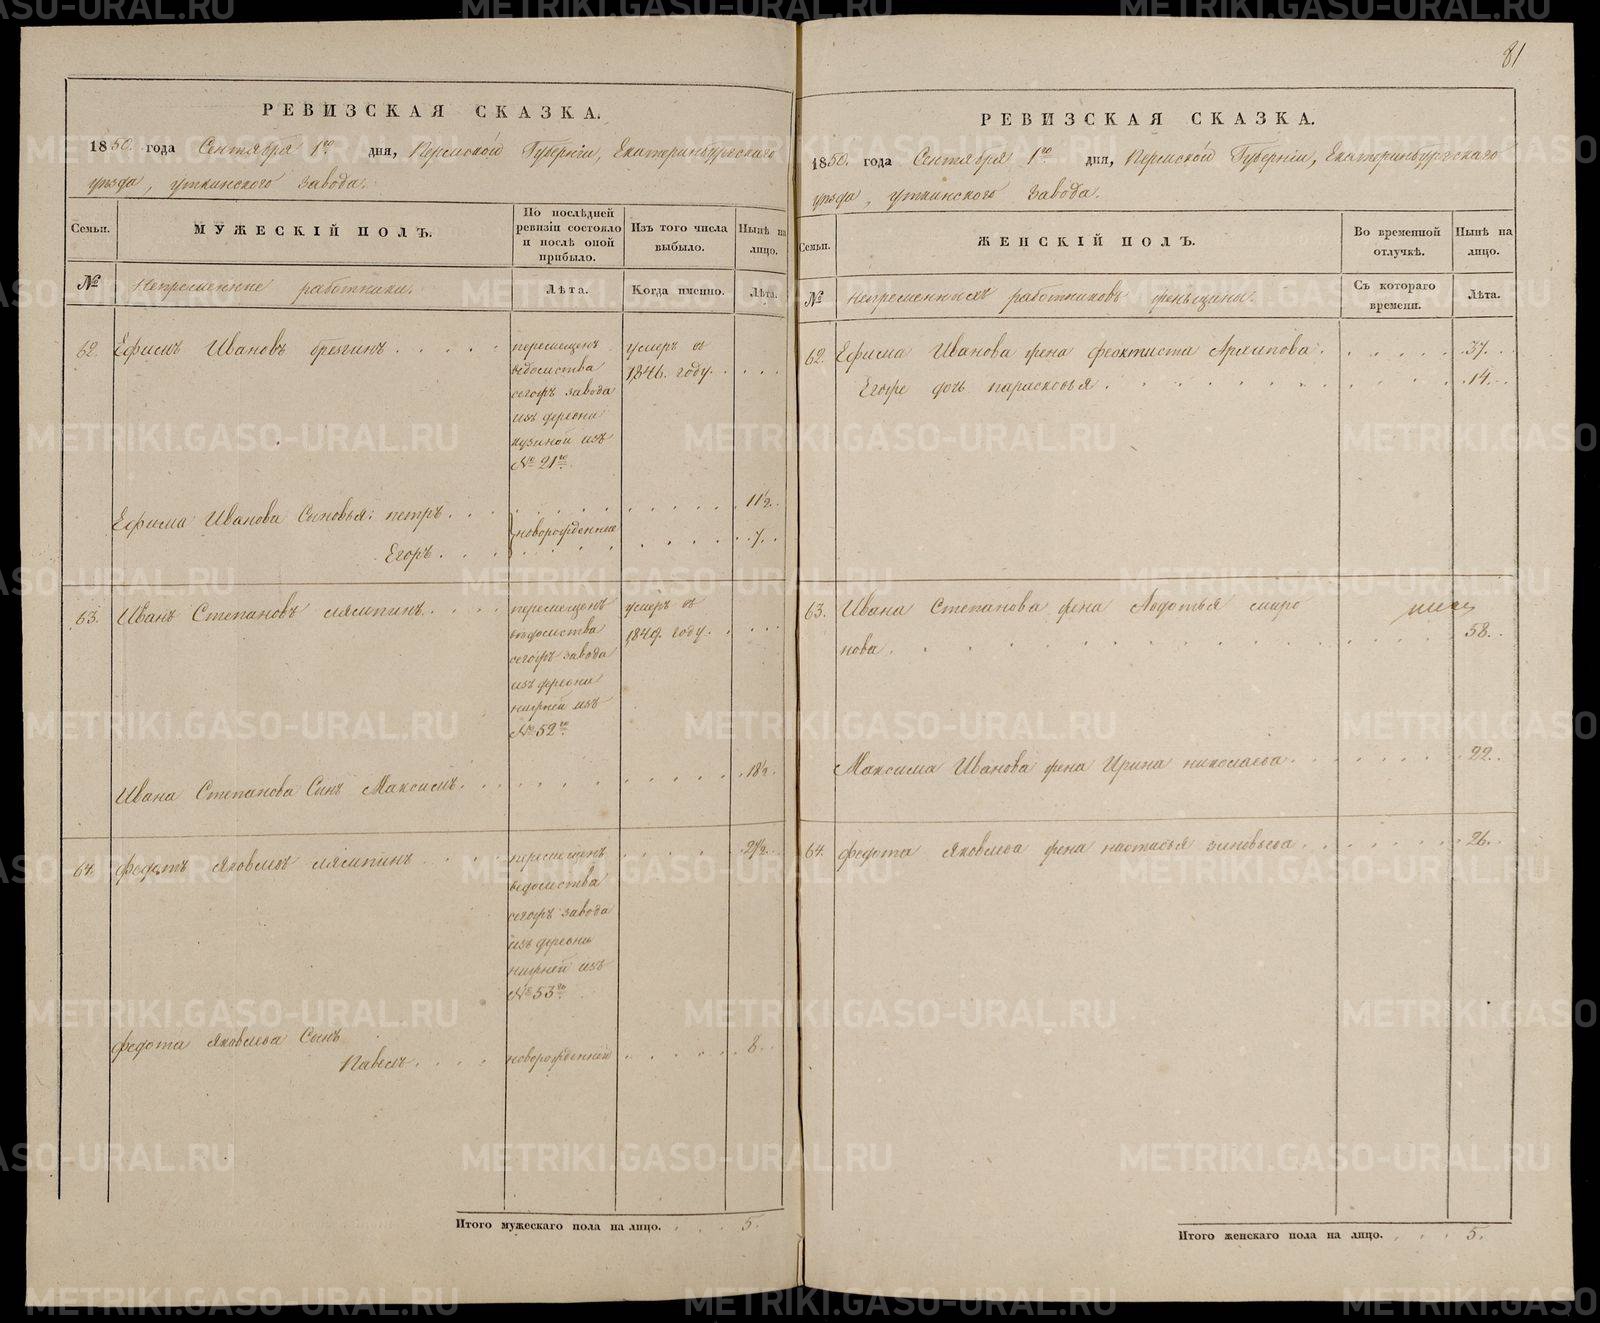 81
РЕВИЗСКАЯ СКАЗКА.
1850. года Сентября 1го дня, Пермской Губернии, Екатеринбургскаго
уезда, уткинского завода.
Семьи.
МУЖЕСКІЙ ПОЛЪ.
По послѣдней ревизіи состояло и послѣ оной прибыло.
Изъ того числа выбыло.
Нынѣ на лицо.
№
Непременные работники.
Лѣта.
Когда именно.
Лѣта.
62. Ефимъ Ивановъ . . . . . перемещенъ умеръ въ
ведомства 1846. году. . . . .
сегожъ завода
изъ деревни
кузиной изъ
№ 21го
Ефима Иванова Сыновья: петръ . . . 11½.
новорожденные
Егоръ . . . . 7. .
63. Иванъ Степановъ лямпинъ. . . . . перемещенъ умеръ въ
ведомства 1849. году. . . . .
сегожъ завода
изъ деревни
нижней изъ
№ 52го
Ивана Степанова Сынъ Максимъ. . . . . 18½.
64. федотъ Яковлевъ лямпинъ . . . . перемещенъ . . . . . 27½.
ведомства
сегожъ завода
изъ деревни
нижней изъ
№ 53го
федота Яковлева Сынъ
Павелъ. . . . новорожденный . . . . . . 8. .
Итого мужескаго пола на лицо. . . . 5.
РЕВИЗСКАЯ СКАЗКА.
1850. года Сентября 1го дня, Пермской Губернии, Екатеринбургскаго
уезда, уткинского завода.
Семьи.
ЖЕНСКІЙ ПОЛЪ.
Во временной отлучкѣ.
Нынѣ на лицо.
№
непременныхъ работниковъ женьщины.
Съ котораго времени.
Лѣта.
62. Ефима Иванова жена феоктиста Архипова. . . . . . . 37. . .
Егоже дочь парасковья. . . . . . . . . . . 14. . .
63. Ивана Степанова жена Авдотья миро
нова. . . . . . . . . . . . . 58. .
Максима Иванова жена Ирина николаева. . . . . . . . 22. .
64. федота Яковлева жена настасья зиновьева. . . . . . . . 26. .
Итого женскаго пола на лицо. . . . 5.
METRIKI.GASO-URAL.RU